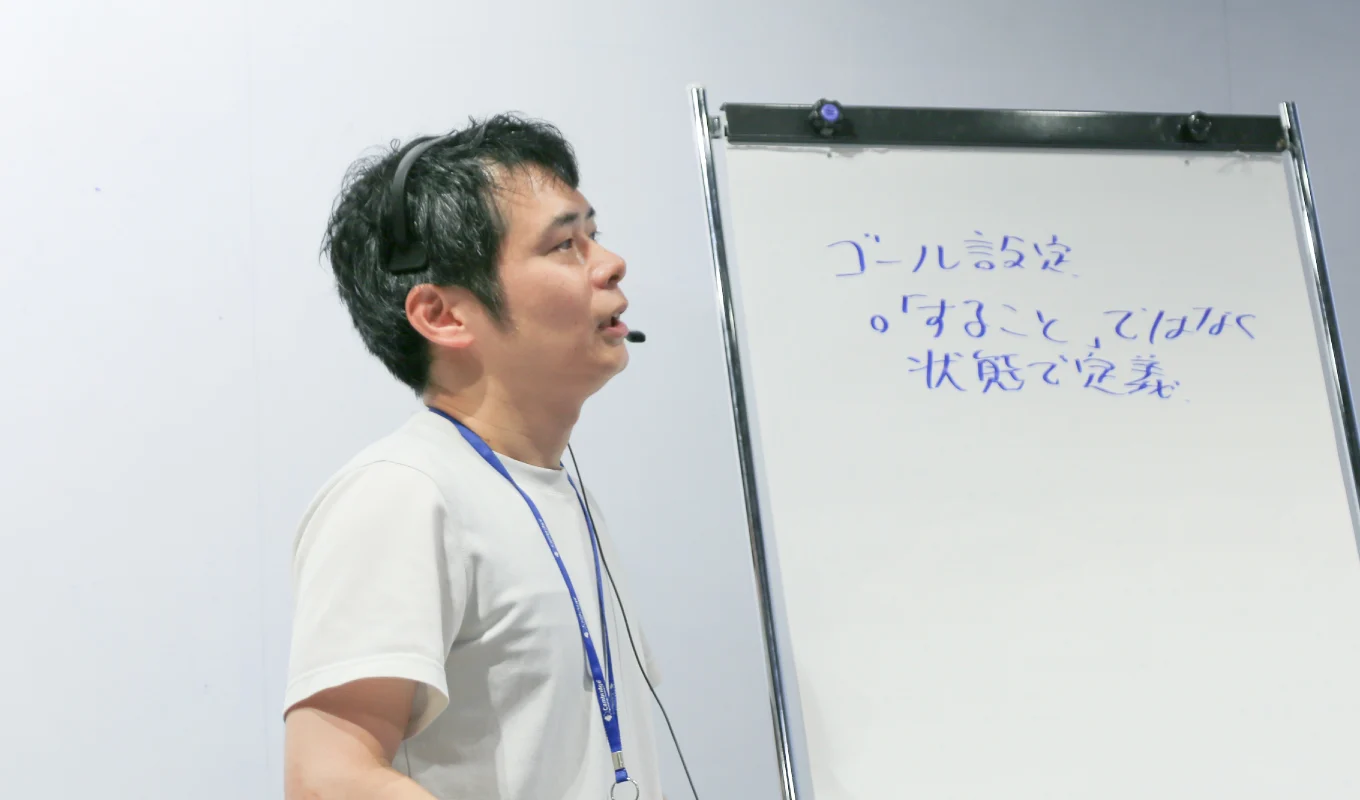 ゴール設定
。「すること」ではなく
状態で定義。
Cambridge